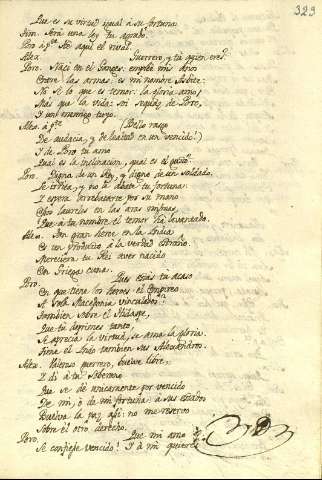 329
Que es su virtud igual á su fortuna.
Tim. Será una ley tu agrado.
Poro á pte. He aqui el rival.
Alex. Guerrero, y tu quien eres?
Poro. Naci en el Ganges: empleé mis dias
Entre las armas: es mi nombre Asbite:
No sé lo que es temor: la gloria amo,
Mas que la vida: soi sequáz de Poro,
I enemigo tuyo.
Alex. á pte. (Bello rasgo
De audacia, y de lealtad en un vencido!)
I de Poro tu amo
Qual es la inclinacion, qual es el gusto?
Poro. Digno de un Rey, y digno de un soldado.
Le irrita, y no le abate tu fortuna:
I espera arrebatarte por su mano
Esos laureles en las aras mismas,
Que á tu nombre el temor ha levantado.
Alex. Un gran heroe en la India
Es un prodigio á la verdad extraño.
Mereciera tu Rei aver nacido
En Griega cuna.
Poro. Pues estás tu acaso
En que tiene los heroes el Empireo
A sola Macedonia vinculados?
Tambien sobre el Hidaspe,
Que tu deprimes tanto,
Se aprecia la virtud, se ama la gloria.
Tiene el Indo tambien sus Alexandros.
Alex. Valeroso guerrero, buelve libre,
I di á tu Soberano
Que se dé unicamente por vencido
De mi, ó de mi fortuna: á sus Estados
Buelva la paz, que no me reservo
Sobre el otro derecho.
Poro. Que mi amo
Se confiese vencido! I á mi quieres